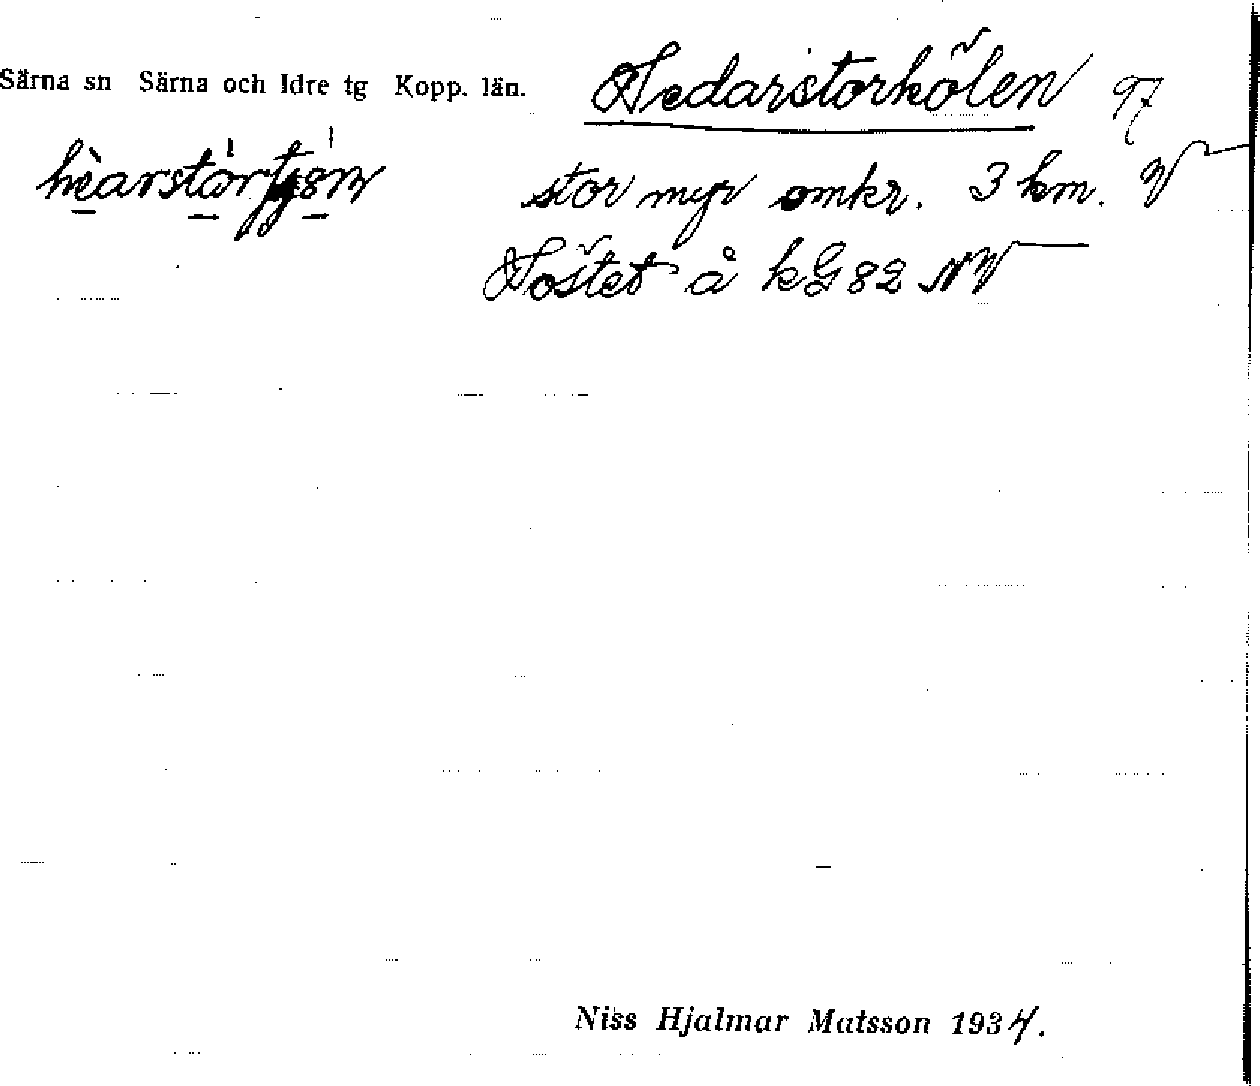 Särna sn Särna och Idre tg Kopp. län. Hedarstorkölen 97
stor myr omkr. 3 km. V
Töstet å kG 82 NV
Niss Hjalmar Matsson 1934.